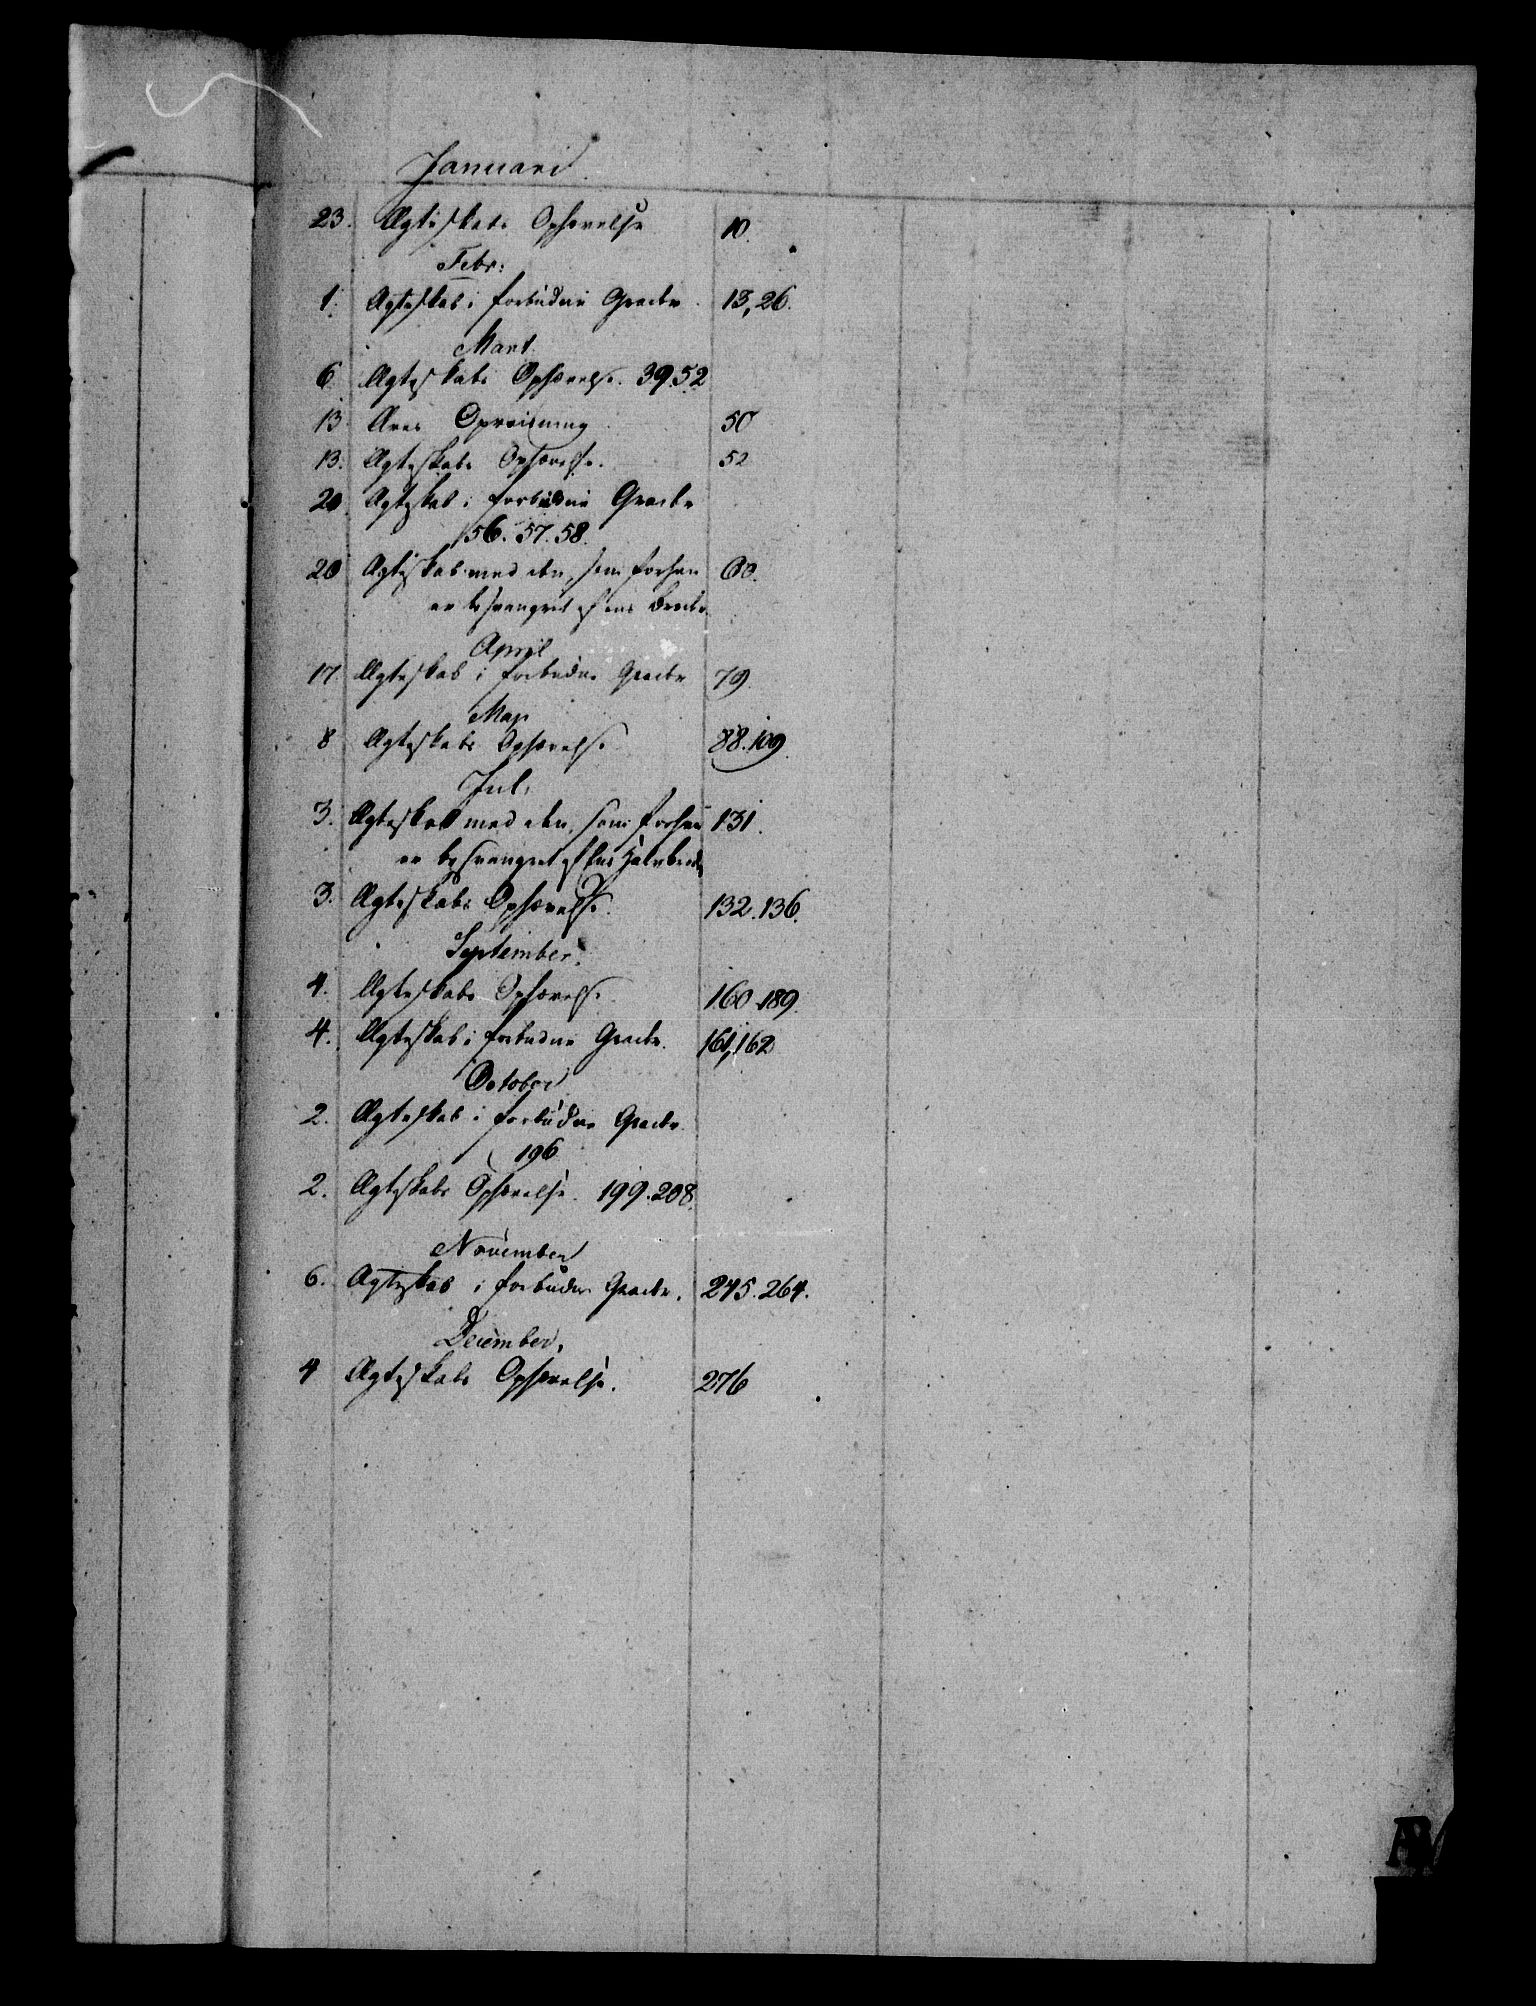 Januari
23. Ægteskabs Ophævelse 10.
Febr:
1. Ægteskab i forbudne Grader 13, 26.
Mart.
6. Ægteskabs Ophævelse. 39.52
13 Æres Opreisning 50
13. Ægteskabs Ophævelse. 52
20. Ægteskab i forbudne Grader
56. 57. 58.
20 Ægteskab med den, som forhen 60.
er besvangret af ens Broder.
April
17 Ægteskab i forbudne Grader 79.
Maj
8 Ægteskabs Ophævelse 88.109.
Jul:
3. Ægteskab med den, som forhen 131.
er besvangret af Ens Halvbroder
3. Ægteskabs Ophævelse. 132.136.
September.
4. Ægteskabs Ophævelse. 160.189.
4. Ægteskab i forbudne Grader. 161,162
October
2. Ægteskab i forbudne Grader.
196
2. Ægteskabs Ophævelse. 199.208.
November
6. Ægteskab i forbudne Grader. 245.264.
December.
4 Ægteskabs Ophævelse. 276